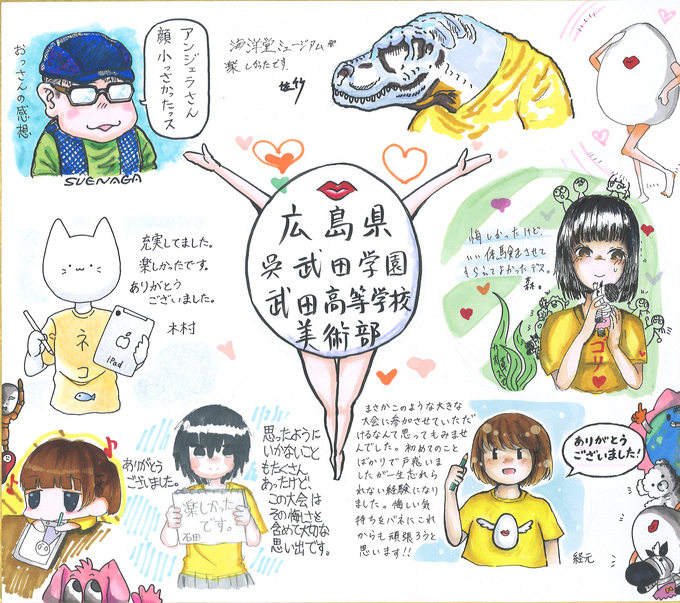 おっさんの感想
アンジェラさん
顔
小っさかったッス
SUENAGA
海洋堂ミュージアムが
楽しかったです
広島県
呉武田学園
武田高等学校
美術部
悔しかったけど、
いい体験させて
もらえてよかったデス。
森。
ゴリ
充実してました。
楽しかったです。
ありがとう
ございました。
木村
ネコ
iPad
ありがとう
ございました。
楽しかった
です。
石田
思ったように
いかないこと
もたくさん
あったけど、
この大会は
その悔しさを
含めて大切な
思い出です。
まさかこのような大きな
大会に参加させていただ
けるなんて思ってもみませ
んでした。初めてのこと
ばかりで戸惑いま
したが一生忘れら
れない経験になり
ました。悔しい気
持ちをバネにこれ
からも頑張ろうと
思います!!
ありがとう
ございました!
経元